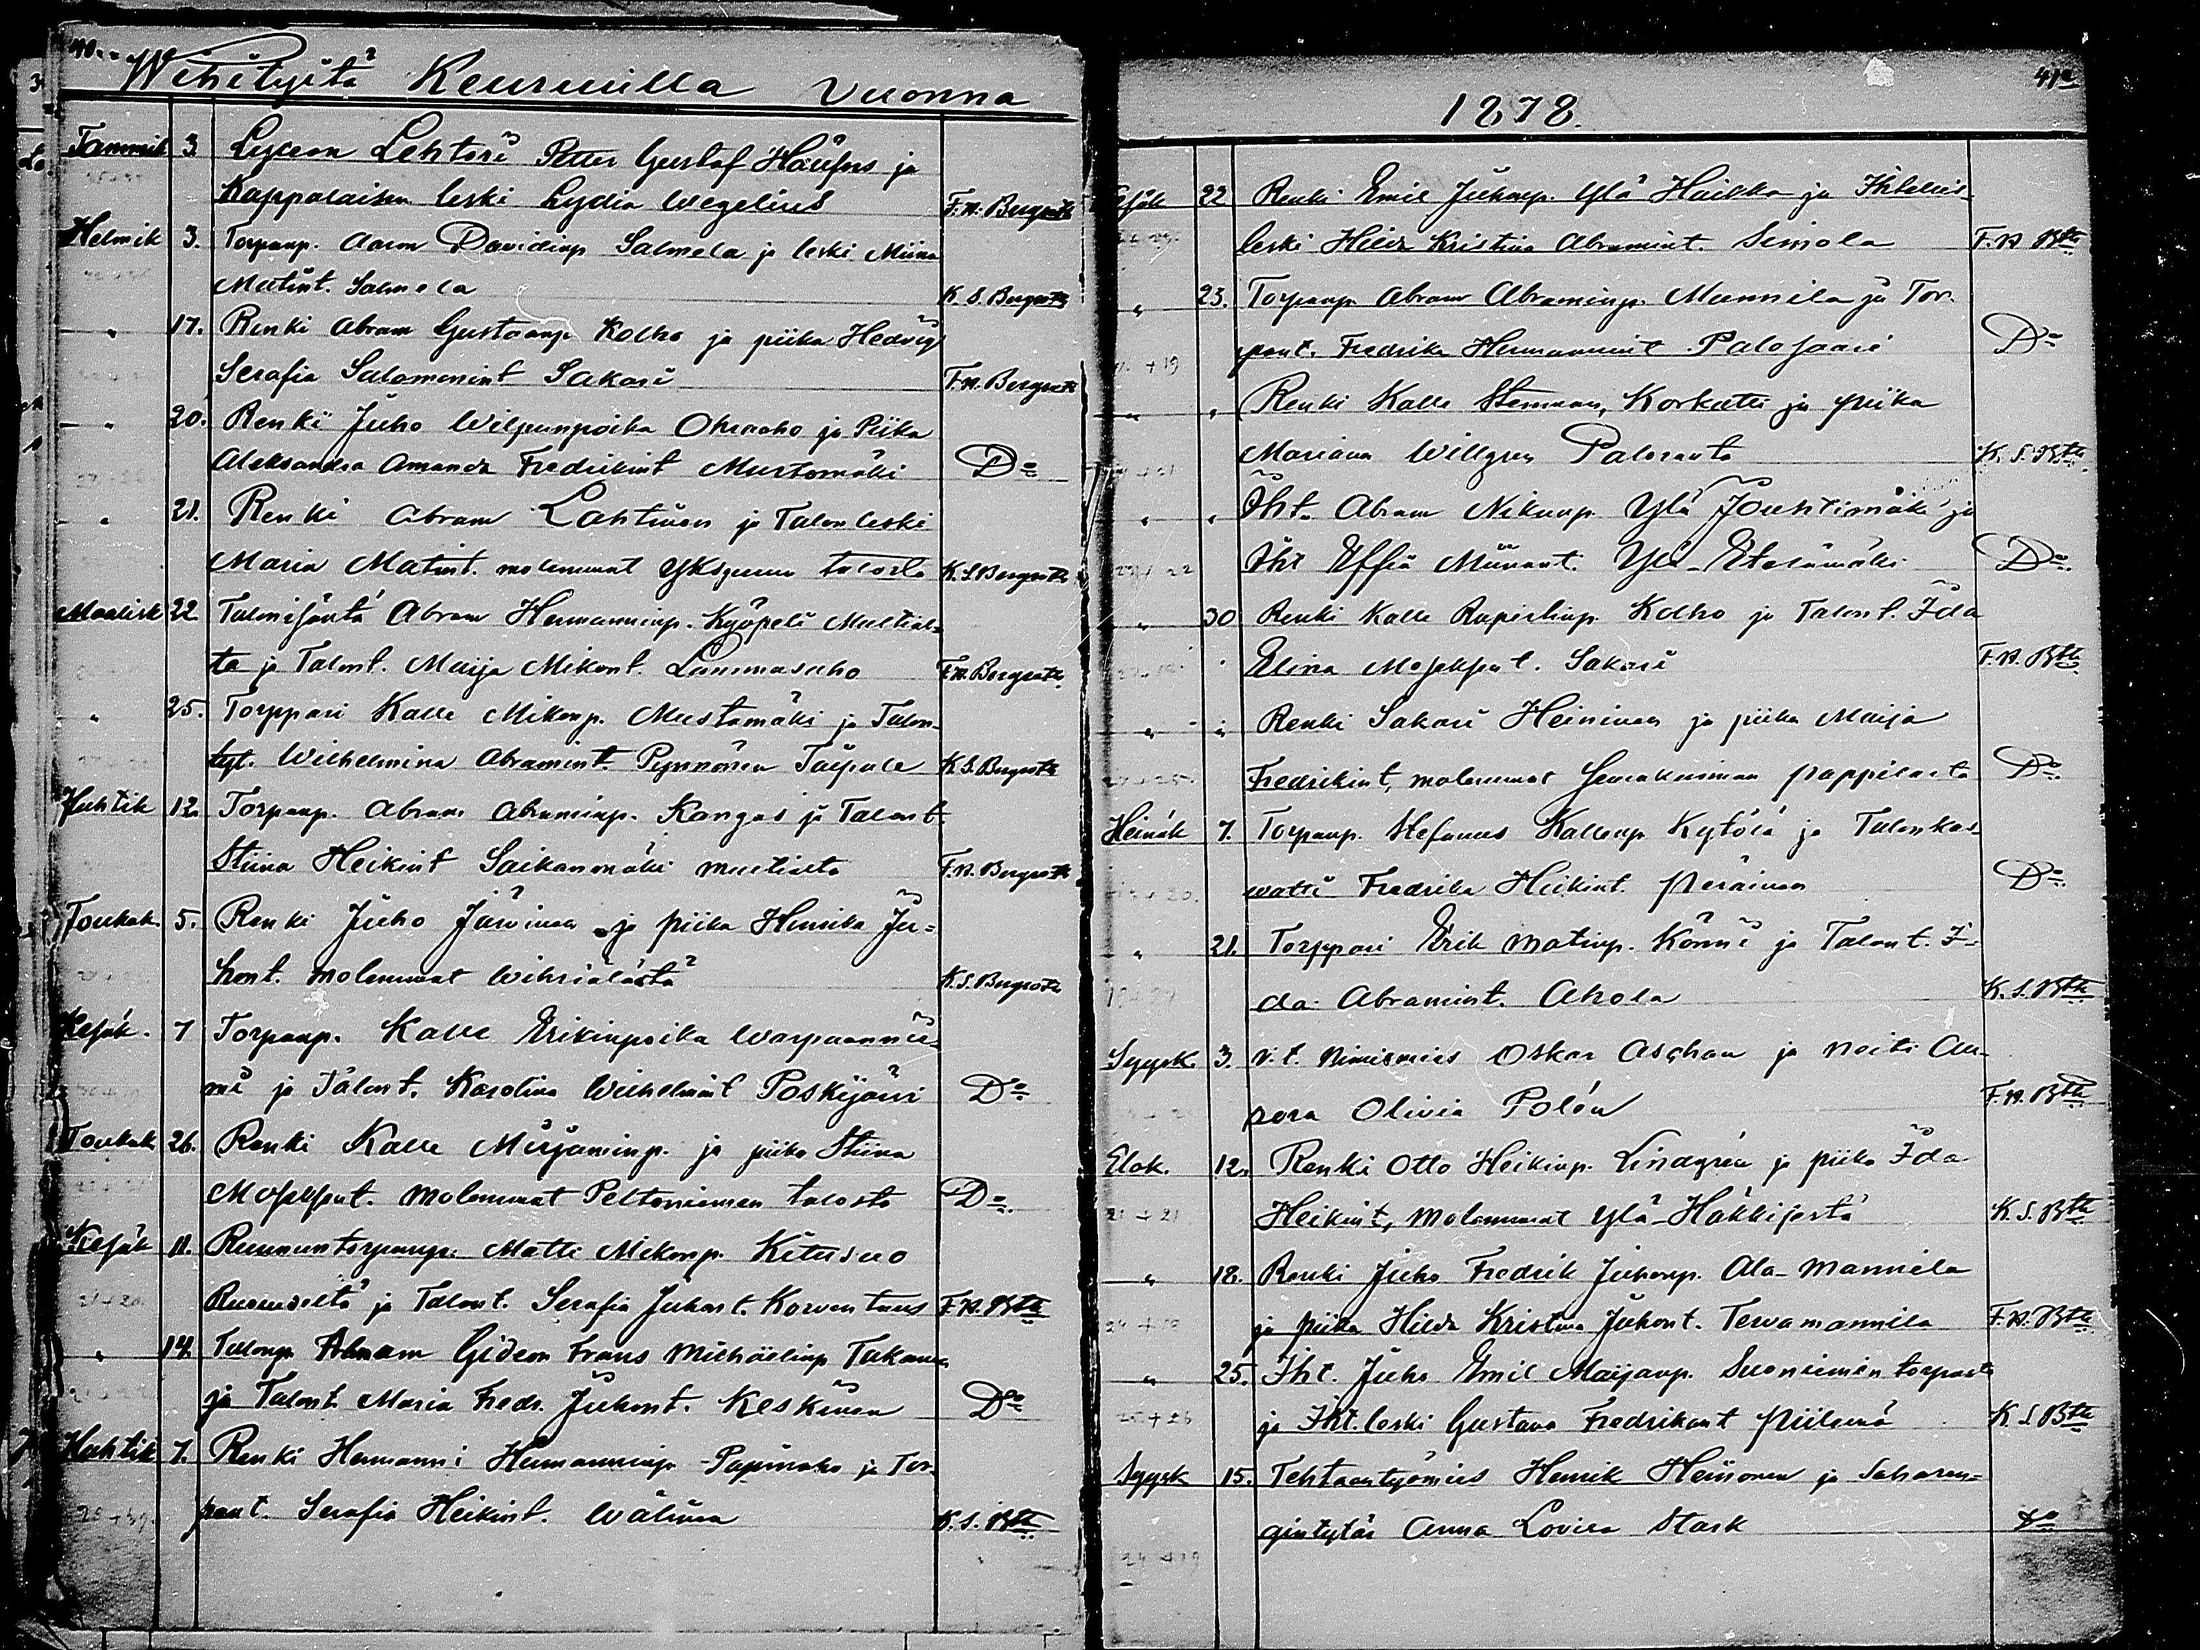 40.
Wihityitä Keuruulla vuonna
Tammik 3. Lyseon Lehtori Petter Gustaf Häufors ja
Kappalaisen leski Lydia Wegelius F.N. Bergroth
Helmik 3. Torpanp. Aaron Davidinp Salmela ja leski Miina
Matint. Salmela K.S. Bergroth
" 17. Renki Abram Gustaanp Kolho ja piika Hedvig
Serafia Salomonint Sakari F.N. Bergroth
" 20. Renki Juho Wilpunpoika Ohraaho ja Piika
Aleksandra Amanda Fredrikint Mustomäki Do
" 21. Renki Abram Lahtinen ja Talonleski
Maria Matint. molemmat Ykspuun talosta K.S. Bergroth
Maalisk 22 Talonisäntä Abram Hermanninp. Kyöpeli Multial-
ta ja Talont. Maija Mikont. Lammasaho F.N. Bergroth
" 25. Torppari Kalle Mikonp. Mustamäki ja Talon-
tyt. Wilhelmina Abramint. Pynnönen Taipale K.S. Bergroth
Huhtik 12. Torpanp. Abram Abraminp. Kangas ja Talont.
Stiina Heikint Saikanmäki Multialta F.N. Bergroth
Toukok. 5. Renki Juho Järvinen ja piika Henrika Ju=
hont. molemmat Wihriälästä K.S. Bergroth
Kesäk. 7 Torpanp. Kalle Erikinpoika Warpaannie-
mi ja Talont. Karolina Wilhelmint Poskijärvi Do
Toukok 26. Renki Kalle Mirjaminp. ja piika Stiina
Mosespnt. molemmat Peltoniemen talosta Do
Kesäk 11. Ruununtorpanp. Matti Mikonp. Kitusuo
Ruovedeltä ja Talont. Serafia Juhont. Korventaus F.N. Bth
" 14. Talonp. Abraam Gideon Frans Mikaelinp Takanen
ja Talont Maria Fredr. Juhont. Keskinen Do
Huhtik 7. Renki Hermanni Hermanninp Papinaho ja Tor-
pant. Serafia Heikint. Wälinen K.S. Bth
41
1878.
Kesäk 22 Renki Emil Juhonp. Ylä Haikka ja Itsellis-
leski Hilda Kristina Abramint. Simola F.N. Bth
" 23. Torpanp Abram Abraminp. Mannila ja Tor-
pant. Fredrika Hermannint Palosaari Do
" " Renki Kalle Korkatti ja piika
Mariana Willgren Paloranta K.S. Bth
" " Iht. Abram Nikunp Ylä Jouhtimäki ja
Iht Effia Miinant. Ylä-Etelämäki Do
" 30 Renki Kalle Kolho ja Talont. Ida
Elina Mosespnt. Sakari F.N. Bth
" " Renki Sakari Heininen ja piika Maija
Fredrikint, molemmat pappilasta Do
Heinäk 7. Torpanp. Stefanus Kallenp Kytölä ja Talonkas-
vatti Fredrika Heikint. Peräinen Do
" 21. Torppari Erik Matinp. Könni ja Talont. I-
da Abramint. Ahola K.S. Bth
Syysk. 3. v.t. Nimismies Oskar Aschan ja neiti Au-
rora Olivia Polón F.N. Bth
Elok. 12. Renki Otto Heikinp. Lindgrén ja piika Ida
Heikint, molemmat Ylä-Häkkisestä K.S. Bth
" 18. Renki Juho Fredrik Juhonp. Ala-Mannila
ja piika Hilda Kristina Juhont. Tervamannila F.N. Bth
" 25. Iht. Juho Emil Maijanp. Suoniemen torpasta
ja Iht. leski Gustava Fredrikant Piilinä K.S. Bth
Syysk 15. Tehtaantyömies Henrik Heinonen ja Saharen-
gintytär Anna Lovisa Stark Do